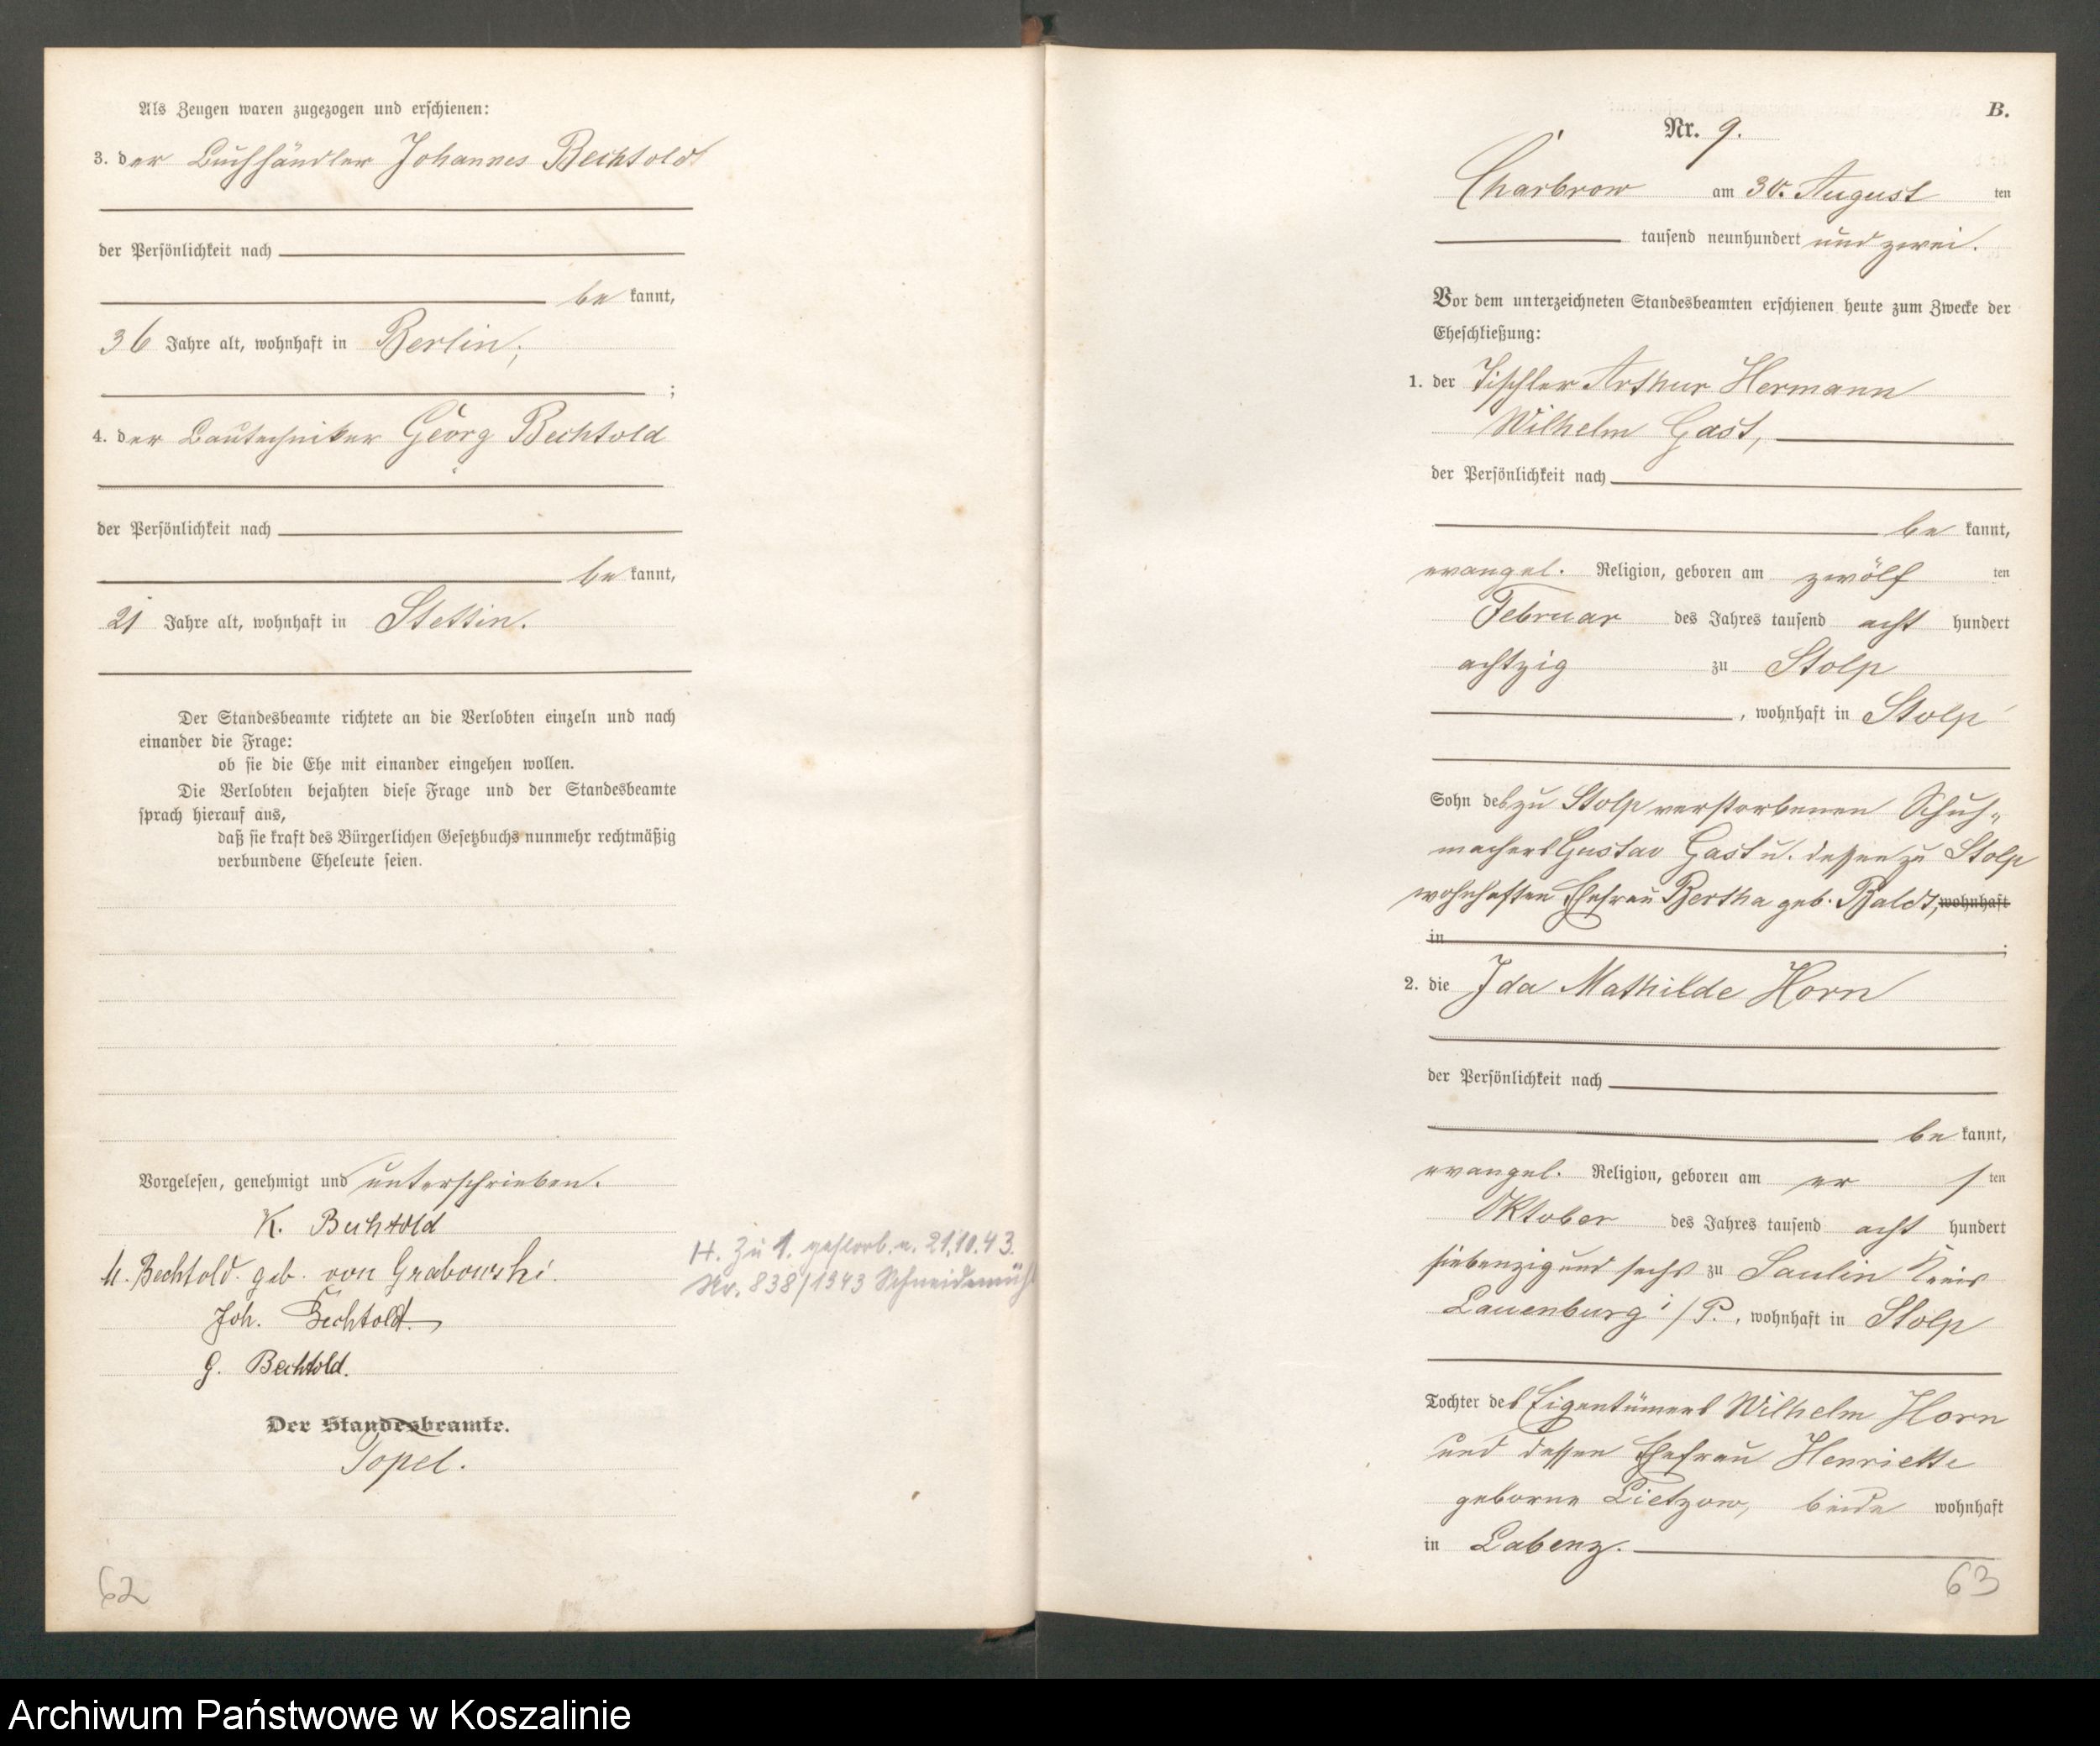 Als Zeugen waren zugezogen und erschienen:
3. der Buchhändler Johannes Bechtold
der Persönlichkeit nach
be kannt,
36 Jahre alt, wohnhaft in Berlin;
;
4. der Bautechniker Georg Bechtold
der Persönlichkeit nach
be kannt,
21 Jahre alt, wohnhaft in Stettin.
Der Standesbeamte richtete an die Verlobten einzeln und nach
einander die Frage:
ob sie die Ehe mit einander eingehen wollen.
Die Verlobten bejahten diese Frage und der Standesbeamte
sprach hierauf aus,
daß sie kraft des Bürgerlichen Gesetzbuchs nunmehr rechtmäßig
verbundene Eheleute seien.
Vorgelesen, genehmigt und unterschrieben.
K. Bechtold
M. Bechtold geb. von Grabowski.
Joh. Bechtold.
G. Bechtold.
Der Standesbeamte.
Topel.
H. Zu 1. gestorb. a. 21.10.43.
Nr. 838/1943 Schneidemühl
62
B.
Nr. 9.
Charbrow am 30. August ten
tausend neunhundert und zwei.
Vor dem unterzeichneten Standesbeamten erschienen heute zum Zwecke der
Eheschließung:
1. der Tischler Arthur Hermann
Wilhelm Gast,
der Persönlichkeit nach
be kannt,
evangel. Religion, geboren am zwölf ten
Februar des Jahres tausend acht hundert
achtzig zu Stolp
, wohnhaft in Stolp
Sohn des zu Stolp verstorbenen Schuh-
machers Gustav Gast u. dessen zu Stolp
wohnhaften Ehefrau Bertha geb. Baldt, wohnhaft
in ;
2. die Ida Mathilde Horn
der Persönlichkeit nach
be kannt,
evangel. Religion, geboren am er s ten
Oktober des Jahres tausend acht hundert
siebenzig und sechs zu Saulin Kreis
Lauenburg i/P. , wohnhaft in Stolp
Tochter des Eigentümers Wilhelm Horn
und dessen Ehefrau Henriette
geborne Lietzow, beide wohnhaft
in Labenz.
63
Archiwum Państwowe w Koszalinie